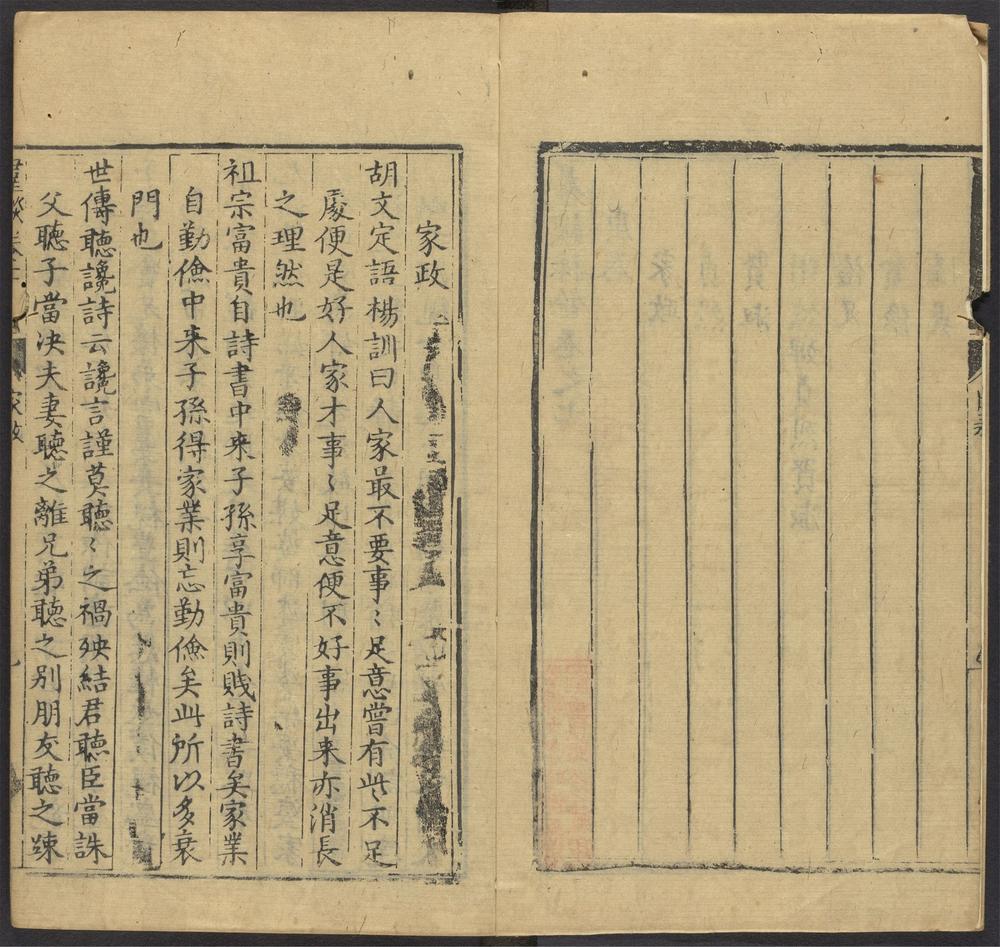 家政
胡文定語楊訓曰人家最不要事〻足意嘗有此不足
處便是好人家才事〻足意便不好事出来亦消長
之理然也
祖宗富貴自詩書中来子孫享富貴則賎詩書矣家業
自勤儉中来子孫得家業則忘勤儉矣此所以多衰
門也
世傳聽讒詩云讒言謹莫聽〻之禍殃結君聽臣當誅
父聽子當决夫妻聽之離兄弟聽之别朋友聽之踈
家政